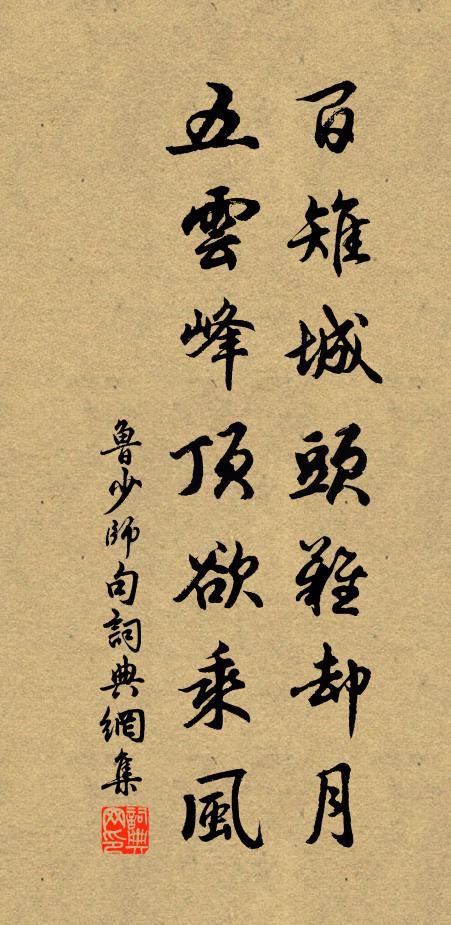 百雉城頭難却月
五雲峰頂欲乘風
魯少師句詞典網集
詞典網印